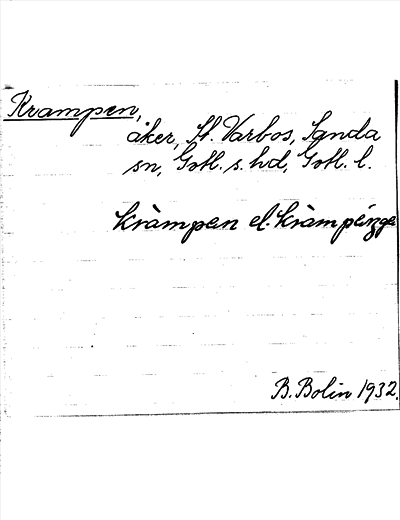 Krampen,
åker, St. Varbos, Sanda
sn, Gotl. s. hd, Gotl. l.
kràmpen el. kràmpéŋge
B. Bolin 1932.